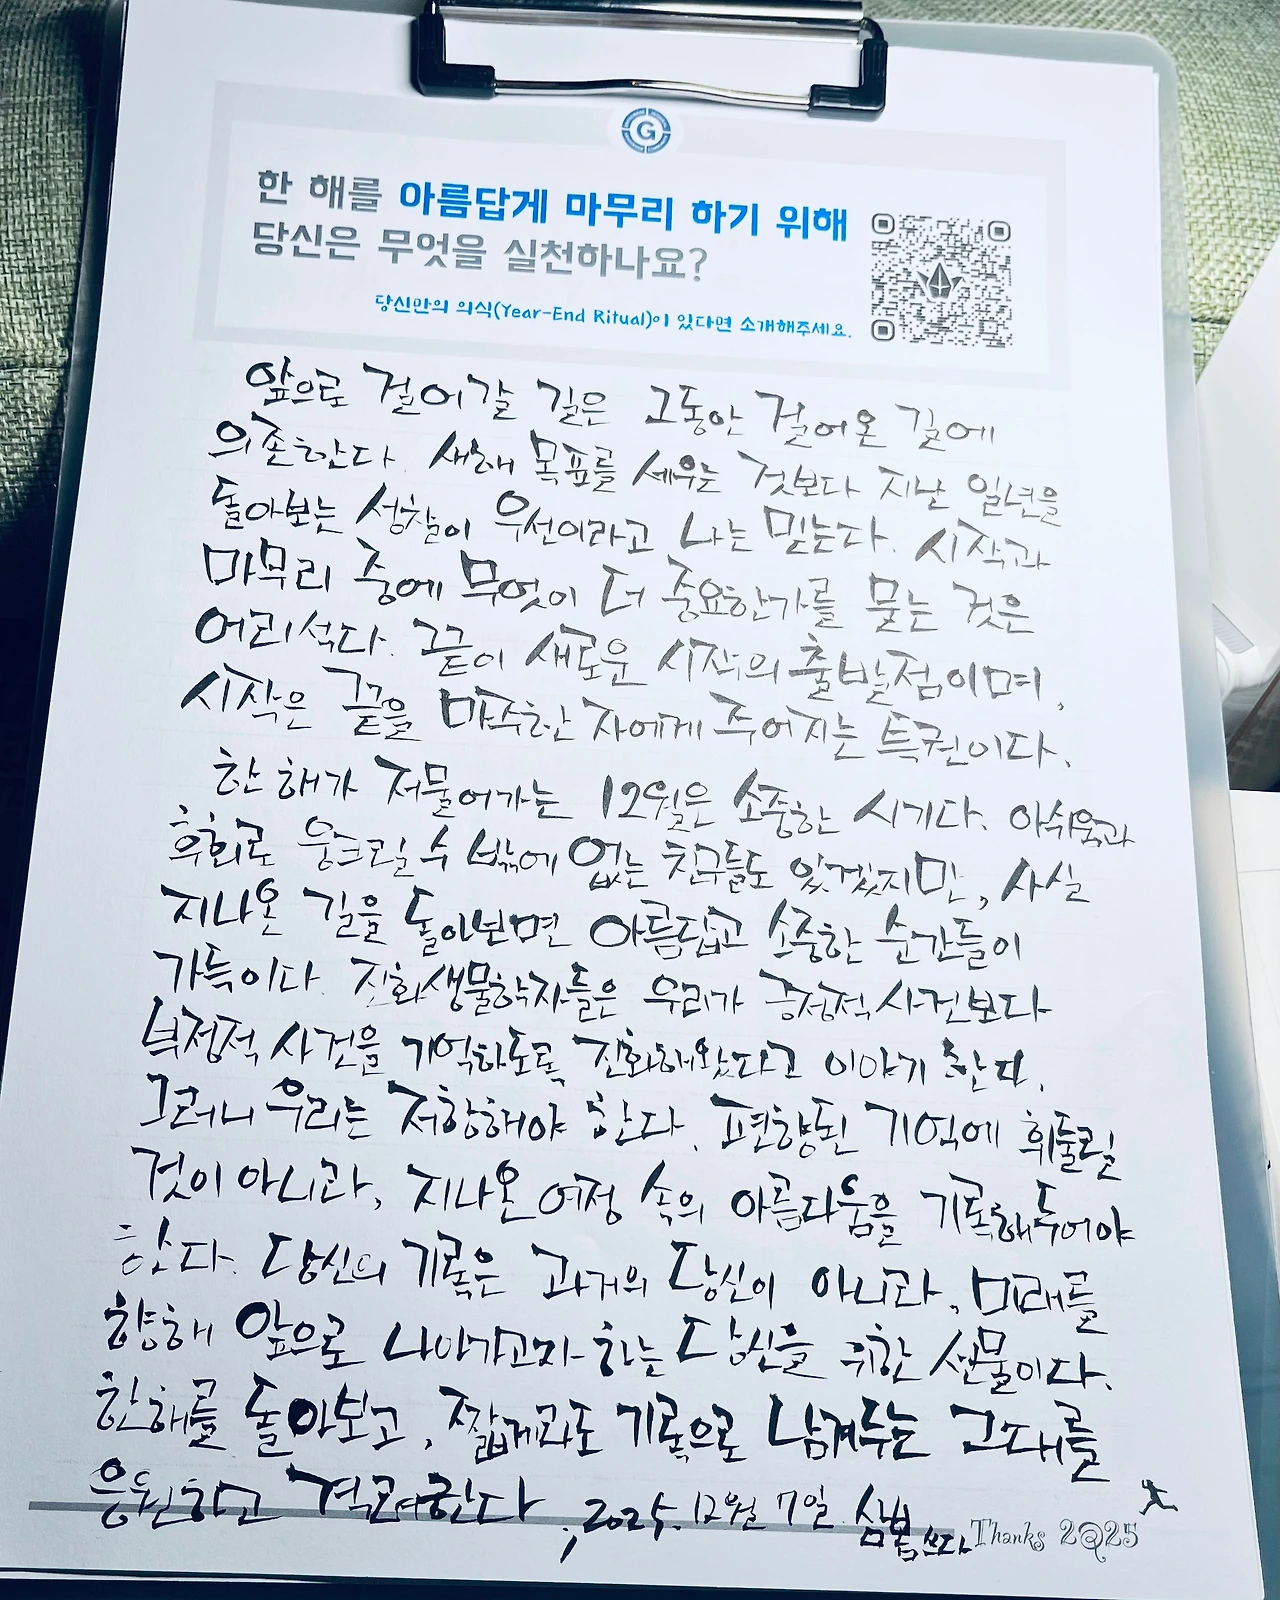 G
한 해를 아름답게 마무리 하기 위해
당신은 무엇을 실천하나요?
당신만의 의식(Year-End Ritual)이 있다면 소개해주세요.
앞으로 걸어갈 길은 그동안 걸어온 길에
의존한다. 새해 목표를 세우는 것보다 지난 일년을
돌아보는 성찰이 우선이라고 나는 믿는다. 시작과
마무리 중에 무엇이 더 중요한가를 묻는 것은
어리석다. 끝이 새로운 시작의 출발점이며,
시작은 끝을 마주한 자에게 주어지는 특권이다.
한 해가 저물어가는 12월은 소중한 시기다. 아쉬움과
후회로 웅크릴 수 밖에 없는 친구들도 있겠지만, 사실
지나온 길을 돌아보면 아름답고 소중한 순간들이
가득이다. 진화생물학자들은 우리가 긍정적 사건보다
부정적 사건을 기억하도록 진화해왔다고 이야기 한다.
그러니 우리는 저항해야 한다. 편향된 기억에 휘둘릴
것이 아니라, 지나온 여정 속의 아름다움을 기록해두어야
한다. 당신의 기록은 과거의 당신이 아니라, 미래를
향해 앞으로 나아가고자 하는 당신을 위한 선물이다.
한해를 돌아보고, 짧게라도 기록으로 남겨두는 그대를
응원하고 격려한다. 2025. 12월 7일 삼봄 쓰다
Thanks 2025